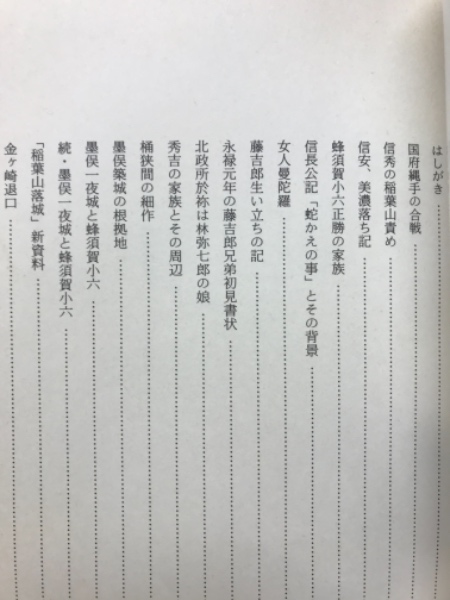 はしがき
国府縄手の合戦
信秀の稲葉山責め
信安、美濃落ち記
蜂須賀小六正勝の家族
信長公記「蛇かえの事」とその背景
女人曼陀羅
藤吉郎生い立ちの記
永禄元年の藤吉郎兄弟初見書状
北政所於祢は林弥七郎の娘
秀吉の家族とその周辺
桶狭間の細作
墨俣築城の根拠地
墨俣一夜城と蜂須賀小六
続・墨俣一夜城と蜂須賀小六
「稲葉山落城」新資料
金ヶ崎退口